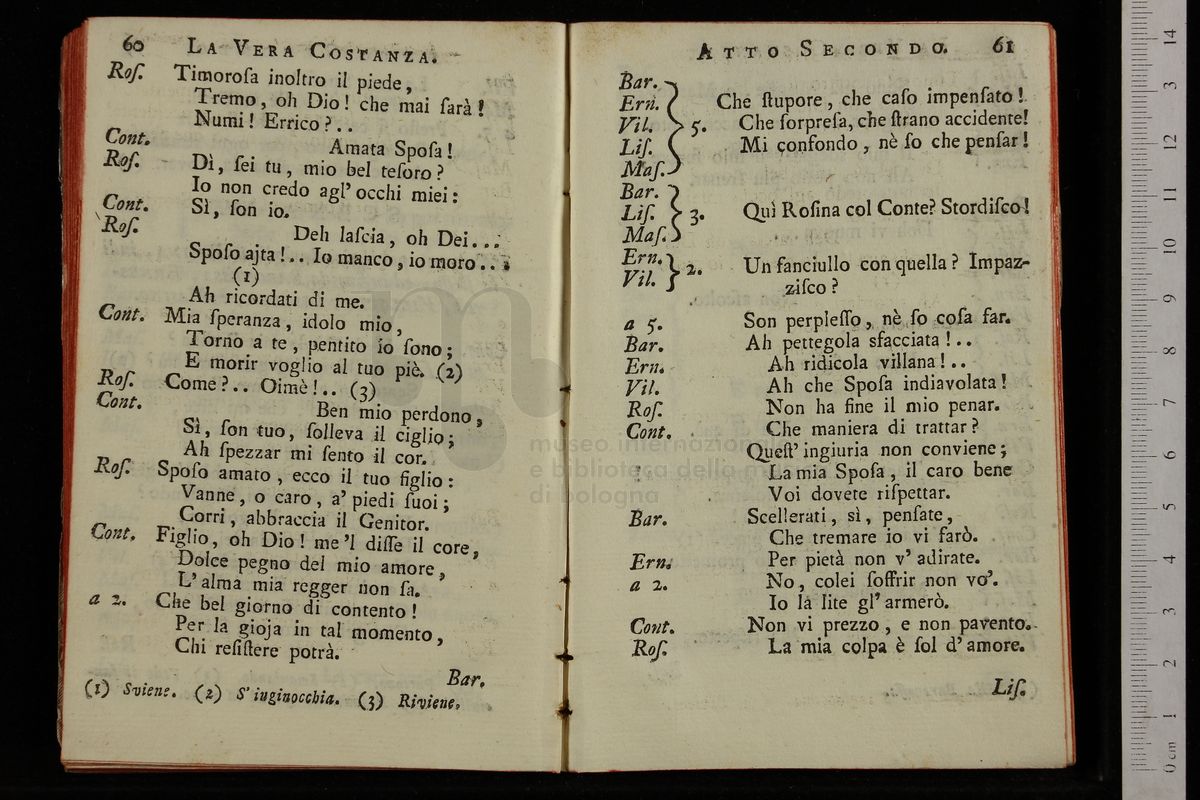 60 LA VERA COSTANZA.
Roſ. Timoroſa inoltro il piede,
Tremo, oh Dio! che mai ſarà!
Numi! Errico?..
Cont. Amata Spoſa!
Roſ. Dì, ſei tu, mio bel teſoro?
Io non credo agl' occhi miei:
Cont. Sì, ſon io.
Roſ. Deh laſcia, oh Dei...
Spoſo ajta!.. Io manco, io moro...
(1)
Ah ricordati di me.
Cont. Mia ſperanza, idolo mio,
Torno a te, pentito io ſono;
E morir voglio al tuo piè. (2)
Roſ. Come?.. Oimè!.. (3)
Cont. Ben mio perdono,
Sì, ſon tuo, ſolleva il ciglio;
Ah ſpezzar mi ſento il cor.
Roſ. Spoſo amato, ecco il tuo figlio:
Vanne, o caro, a' piedi ſuoi;
Corri, abbraccia il Genitor.
Cont. Figlio, oh Dio! me'l diſſe il core,
Dolce pegno del mio amore,
L'alma mia regger non ſa.
a 2. Che bel giorno di contento!
Per la gioja in tal momento,
Chi reſiſtere potrà.
Bar.
(1) Sviene. (2) S'inginocchia. (3) Riviene,
ATTO SECONDO. 61
Bar.
Ern. Che ſtupore, che caſo impenſato!
Vil. 5. Che ſorpreſa, che ſtrano accidente!
Liſ. Mi confondo, nè ſo che penſar!
Maſ.
Bar.
Liſ. 3. Quì Roſina col Conte? Stordiſco!
Maſ.
Ern. 2. Un fanciullo con quella? Impaz-
Vil. ziſco?
a 5. Son perpleſſo, nè ſo coſa far.
Bar. Ah pettegola sfacciata!..
Ern. Ah ridicola villana!..
Vil. Ah che Spoſa indiavolata!
Roſ. Non ha fine il mio penar.
Cont. Che maniera di trattar?
Queſt' ingiuria non conviene;
La mia Spoſa, il caro bene
Voi dovete riſpettar.
Bar. Scellerati, sì, penſate,
Che tremare io vi farò.
Ern. Per pietà non v' adirate.
a 2. No, colei ſoffrir non vo'.
Io la lite gl' armerò.
Cont. Non vi prezzo, e non pavento.
Roſ. La mia colpa è ſol d' amore.
Liſ.
museo internazionale
e biblioteca della musica
di bologna
0 cm 1 2 3 4 5 6 7 8 9 10 11 12 13 14